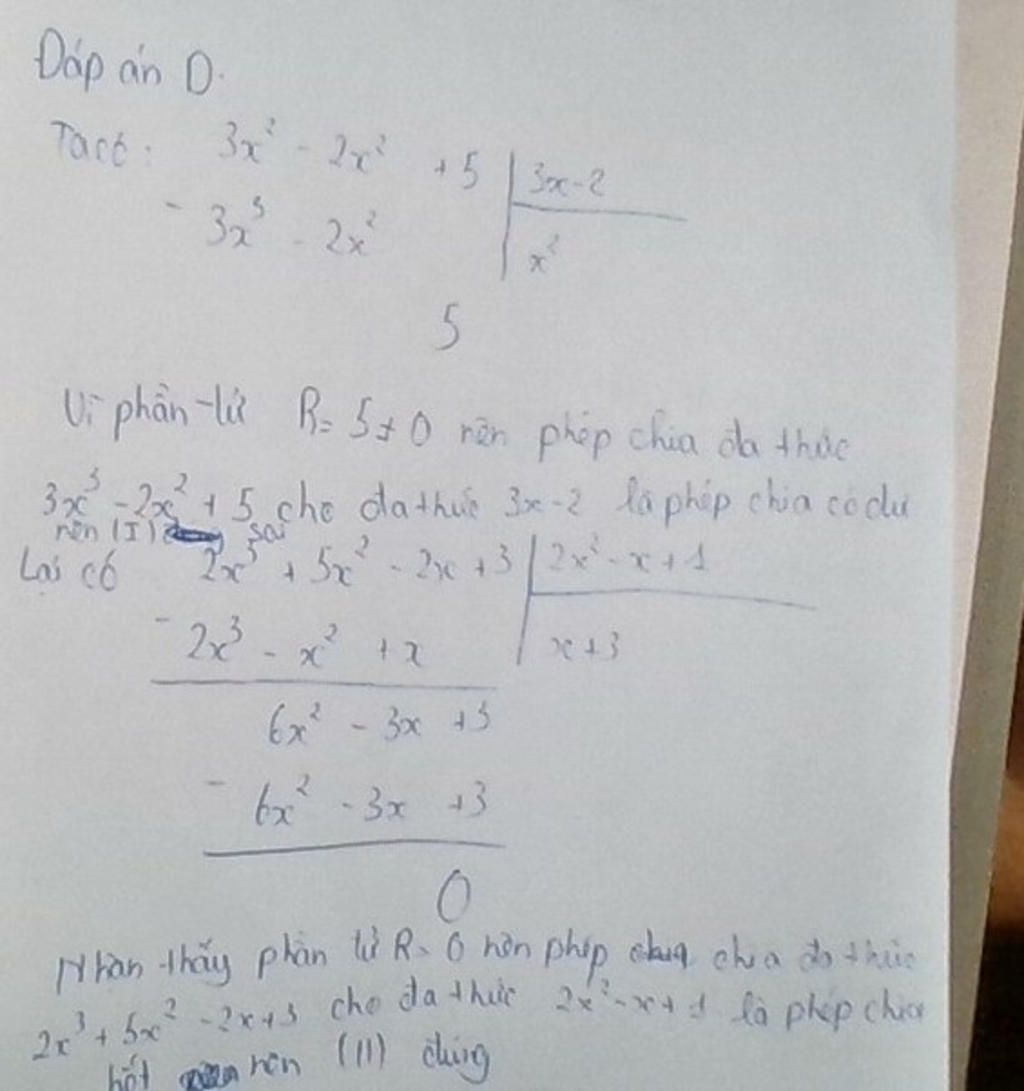 Đáp án D.
Ta có: 3x² - 2x² + 5 | 3x-2
- 3x³ - 2x² | x²
5
Vì phần tử R = 5 ≠ 0 nên phép chia đa thức
3x³ - 2x² + 5 cho đa thức 3x-2 là phép chia có dư
nên (I) sai
Lại có 2x³ + 5x² - 2x + 3 | 2x² - x + 1
- 2x³ - x² + x | x+3
6x² - 3x + 3
- 6x² - 3x + 3
0
Nhận thấy phần tử R = 0 nên phép chia đa thức
2x³ + 5x² - 2x + 3 cho đa thức 2x² - x + 1 là phép chia
hết nên (II) đúng